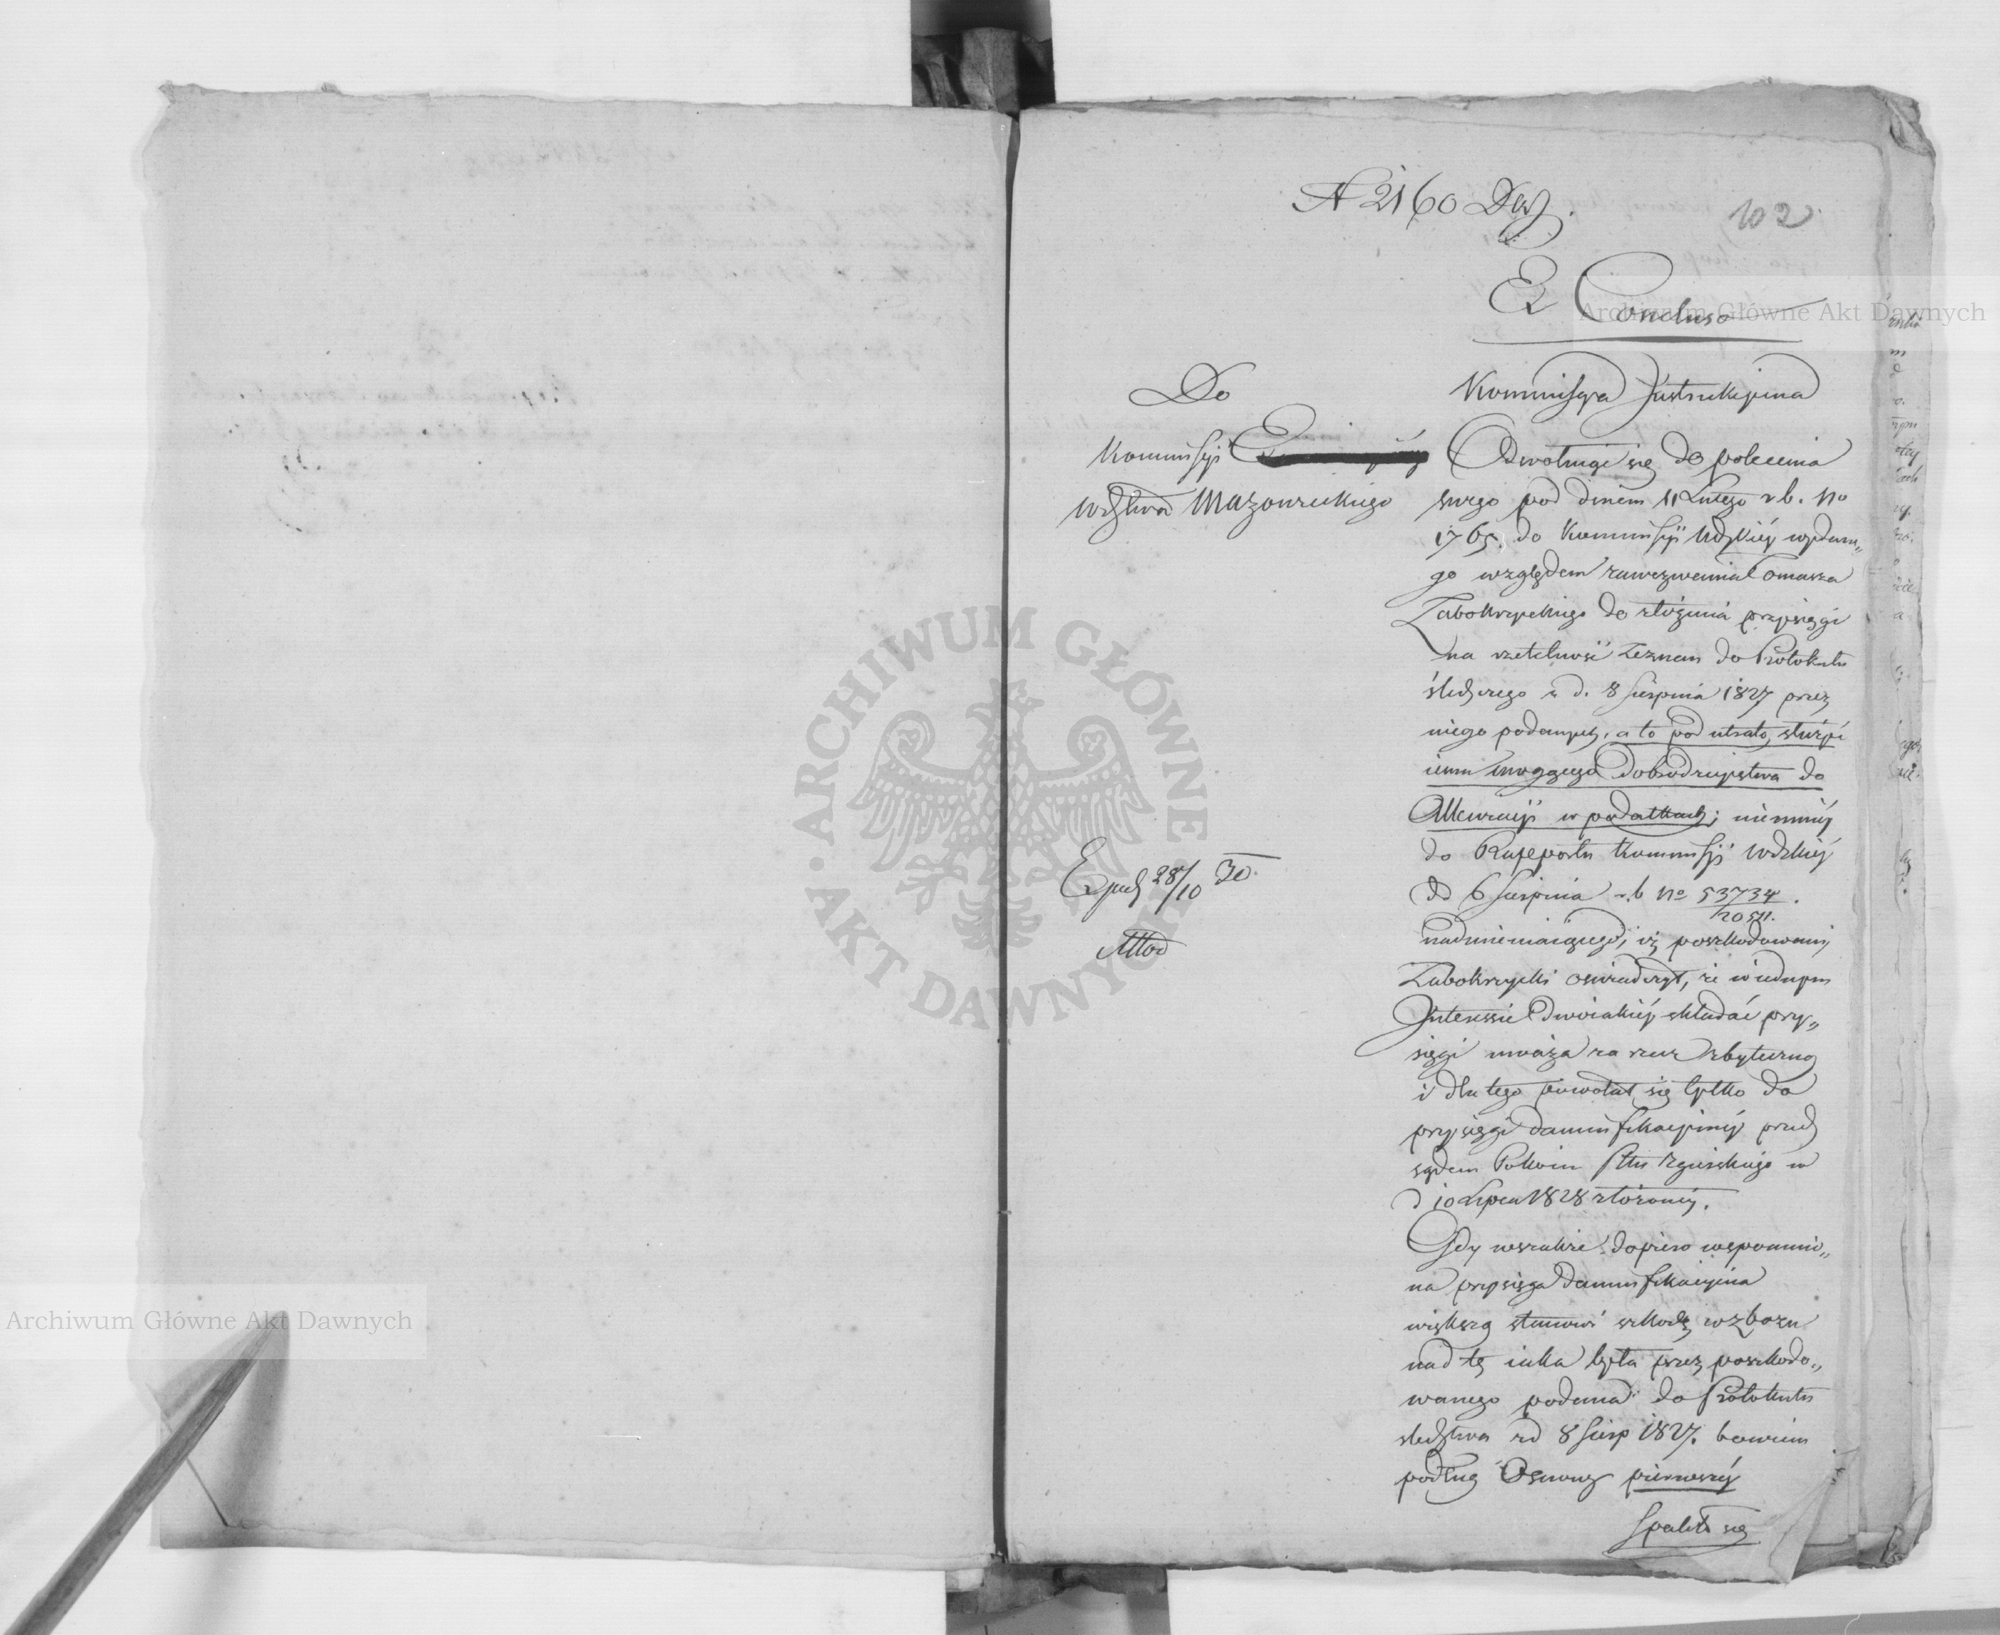 N 2160 Dej.
102
Ex Concluso
Do
Kommissyi
wdztwa Mazowieckiego
Exped 28/10 30.
Kommissya Instrukcyina
Odwołuiąc się do polecenia
swego pod dniem 11 Lutego r b. No
1765. do Kommissyi Wdzkiéy wydane„
go względem zawezwania Tomasza
Zabokrzyckiego do złożenia przysięgi
na rzetelność zeznań do Protokułu
śledczego z d. 8 Sierpnia 1827 przez
niego podanych, a to pod utratą służyć
iemu mogącego dobrodzieystwa do
Allewiacyi w podatkach; niemniéy
do Rapportu Kommissyi Wdzkiéy
do 6 Sierpnia r.b No 53734/20511.
nadmieniaiącego, iż poszkodowany
Zabokrzycki oświadczył, że w iednym
Interessie dwoiakiéy składać przy„
sięgi uważa za rzecz zbyteczną
i dla tego powołał się tylko do
przysięgi damnifikacyinéy przed
sądem Pokoiu Pttu Zgierskiego w
d 10 Lipca 1828 złożonéy.
Gdy wszakże dopiero wspomnio„
na przysięga damnifikacyina
większą stanowi szkodę w zbożu
nad tę iaka była przez poszkodo„
wanego podana do Protokułu
śledztwa zd 8 Sierp 1827. bowiem
podług Osnowy piérwszéy
spaliło się
Archiwum Główne Akt Dawnych
Archiwum Główne Akt Dawnych
ARCHIWUM GŁÓWNE AKT DAWNYCH